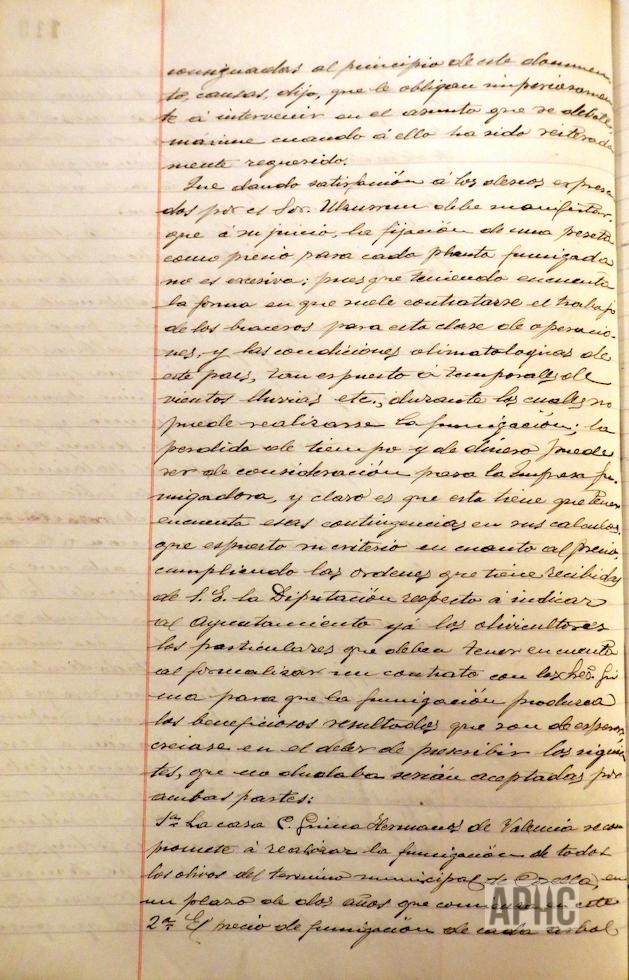 consignadas al principio de este documen
to, causas, dijo, que le obligan imperiosamen
te á intervenir en el asunto que se debate,
máxime cuando á ello ha sido reiterada
mente requerido.
Que dando satisfación á los deseos expresa
dos por el Sor. debe manifestar,
que á su juicio, la fijación de una peseta
como precio para cada planta fumigada
no es excesiva; pues que teniendo encuenta
la forma en que suele contratarse el trabajo
de los braceros para esta clase de operacio-
nes, y las condiciones climatologicas de
este pais, tan espuesto á temporales de
vientos lluvias etc., durante los cuales no
puede realizarse la fumigación; la
perdida de tiempo y de dinero puede
ser de consideración para la Empresa fu-
migadora, y claro es que esta tiene que tener
encuenta esas contingencias en sus calculos.
que espuesto su criterio en cuanto al precio,
cumpliendo las ordenes que tiene recibidas
de S. E. la Diputación respecto á indicar
al Ayuntamiento y á los olivicultores
los particulares que deben tener encuenta
al formalizar un contrato con los hes. Gui
ma para que la fumigación produzca
los beneficiosos resultados que son de esperar,
creiase en el deber de prescribir los siguien
tes, que no dudaba serián aceptadas por
ambas partes:
1ª La casa C. Hermanos de Valencia se com
promete á realizar la fumigación de todos
los olivos del termino municipal de Corella, en
un plazo de dos años que en este
2ª El precio de fumigación de cada arbol
APHC